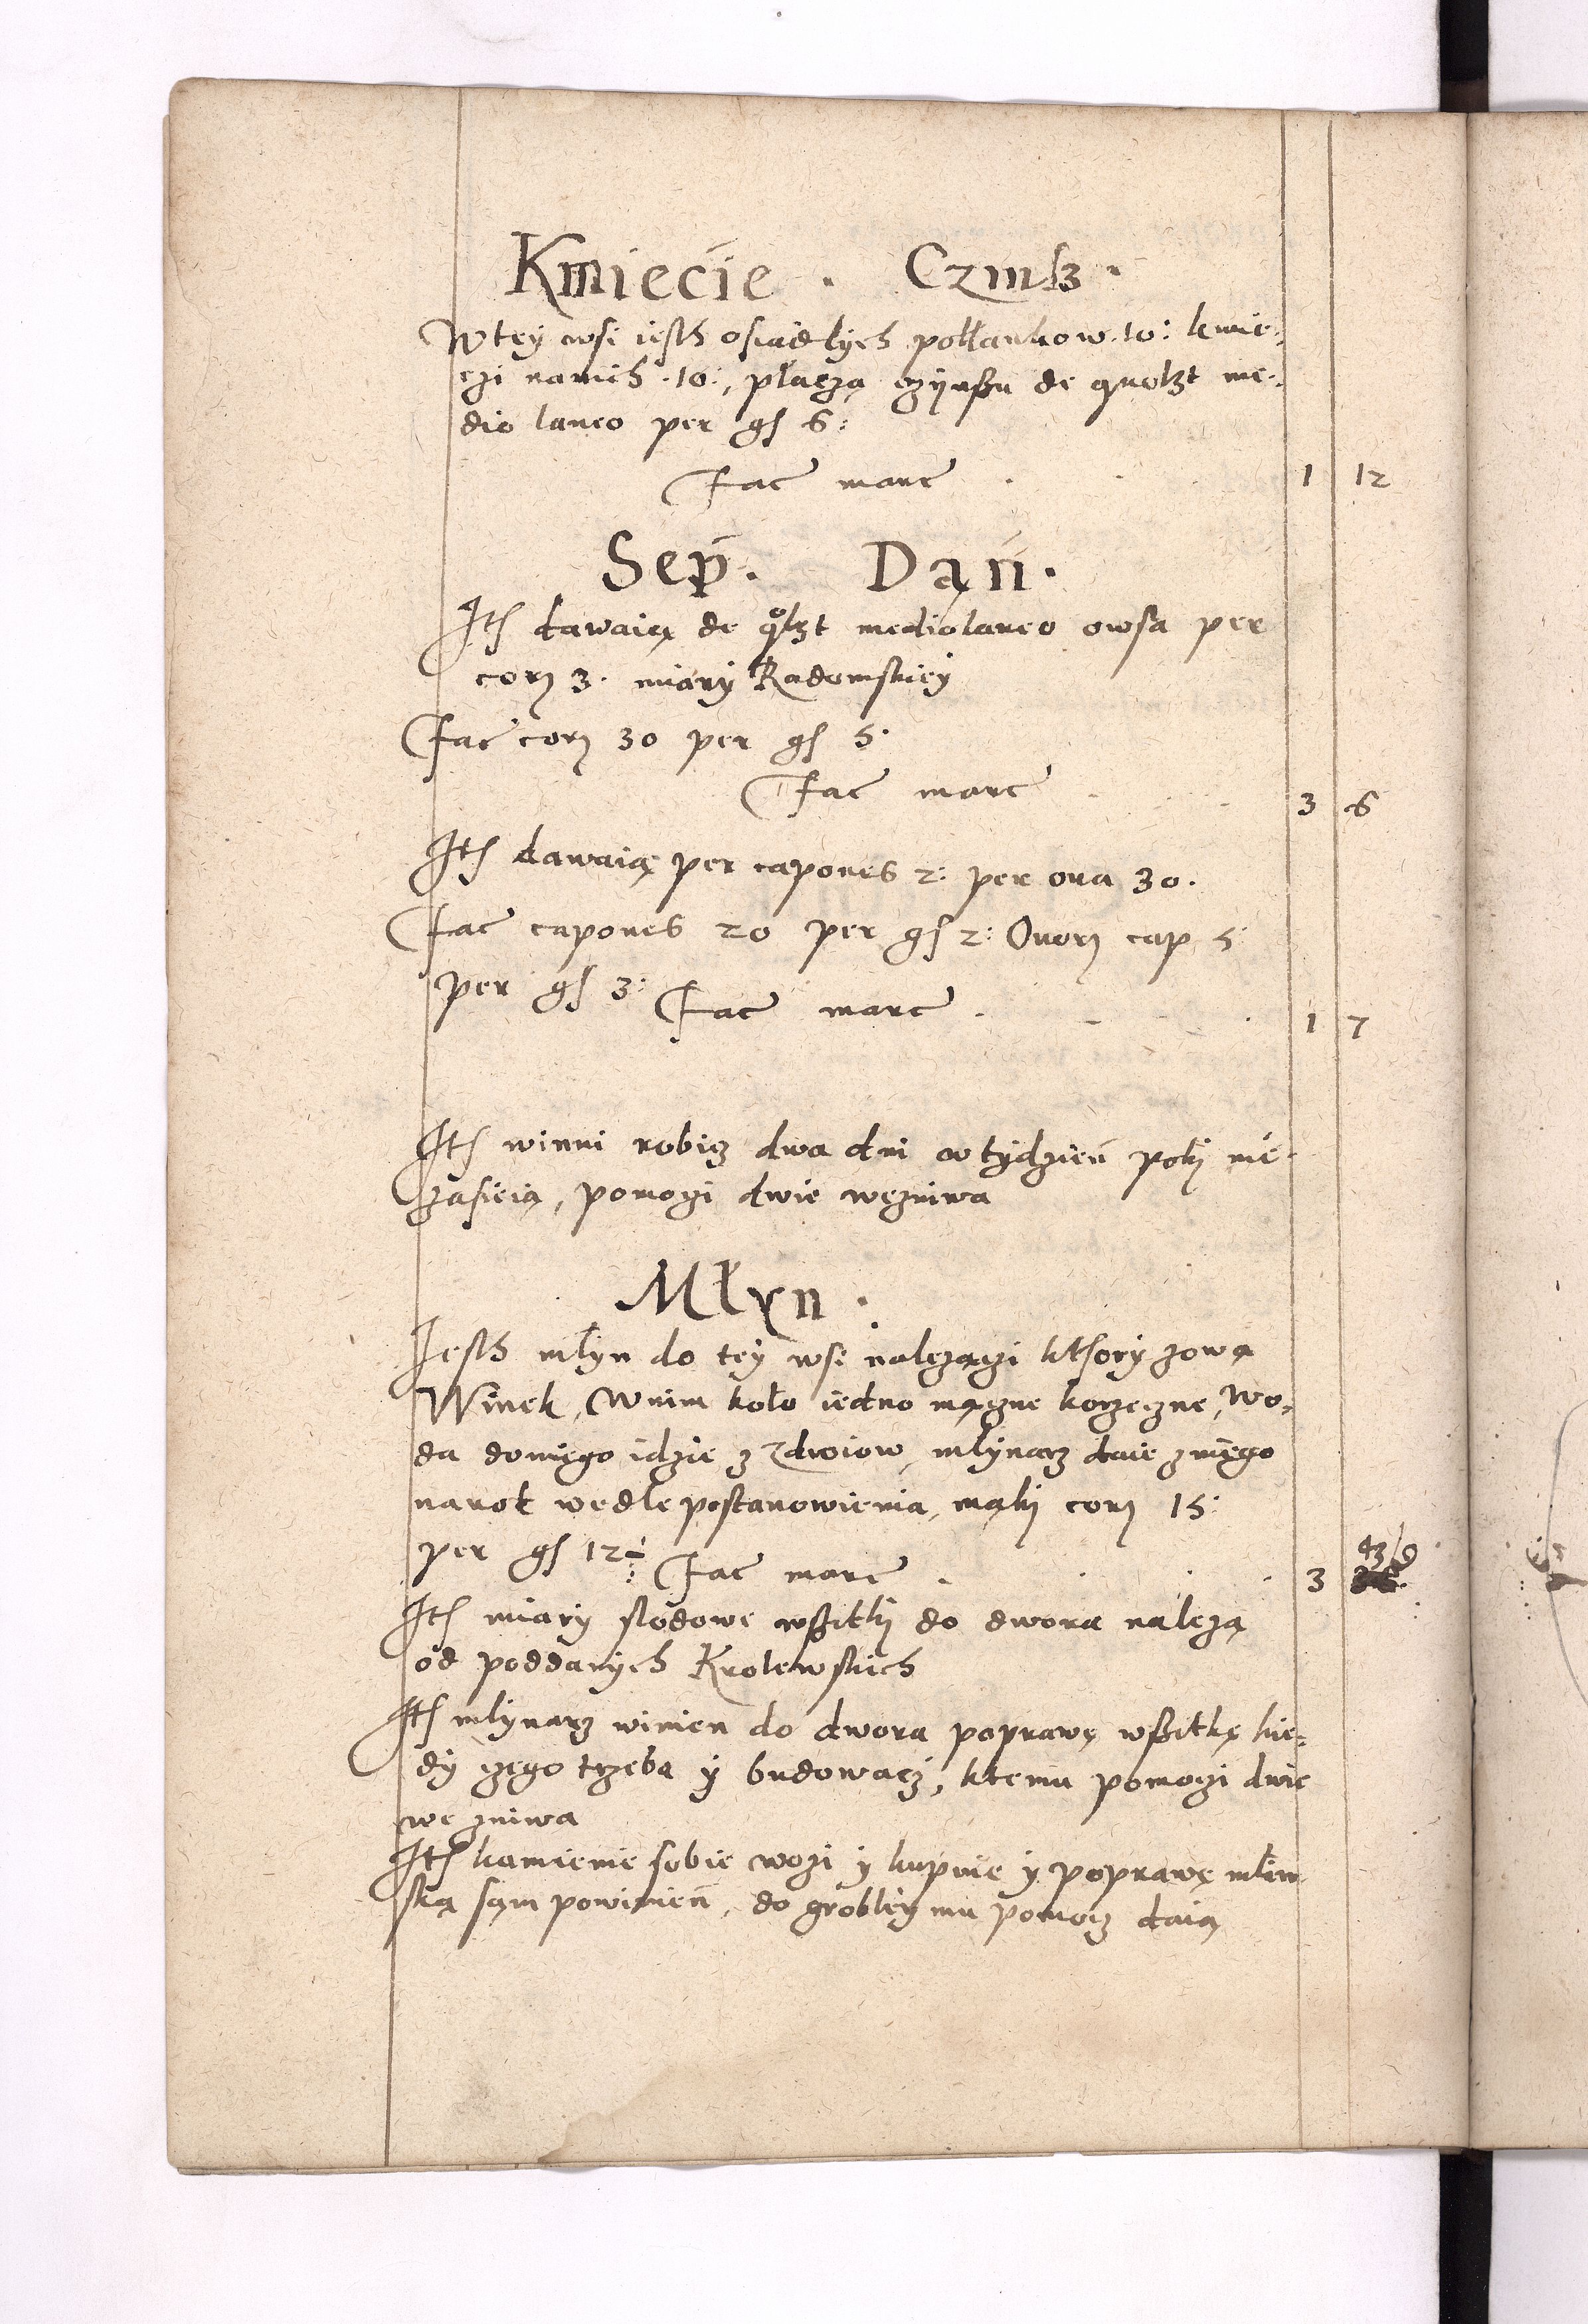 Kmiecie . Czinsz .
W tey wsi iesth osiadlych pollankow .10: kmie-
czi nanich .10:, placzą czÿnszu de quolzt me-
dio laneo per gs 6:
Fac marc . 1 12
Sep. Dań.
Ith dawaią de qͦlzt mediolaneo owsa per
corz 3. miary Radomskieÿ
Fac corz 30 per gs 5.
Fac marc 3 6
Ith dawaią per capones 2: per oua 30.
Fac capones 20 per gs 2: Ouorz cap 5
per gs 3: Fac marc . 1 7
Ith winni robicz dwa dni w tÿdzień poki nie
zasieią, pomogi dwie wezniwa
Młyn .
Iesth młÿn do teÿ wsi nalezączi kthorÿ zową
Winek, Wnim koło iedno mączne korzeczne, wo-
da doniego idzie z Zdroiow, mlÿnarz daie zniego
narok wedle postanowienia, mąki corz 15.
per gs 12½ Fac marc . 3 43/9
Ith miarÿ slodowe wszitki do dwora nalezą
od poddanÿch Krolewskich
Ith mlÿnarz winien do dwora poprawę wszitkę kie-
dÿ czego trzeba ÿ budowacz, ktemu pomogi dwie
we zniwa
Ith kamienie sobie wozi ÿ kupuie ÿ poprawę mlin-
ską sąm powinień, do grobleÿ mu pomocz daią